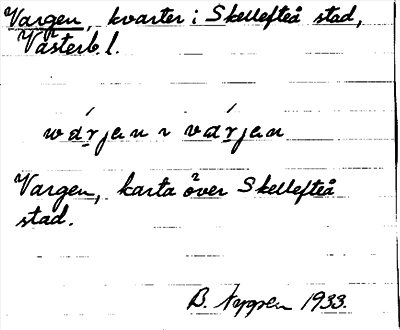 Vargen, kvarter i Skellefteå stad,
Västerb. l.
wárjan ~ várjan
Vargen, karta över Skellefteå
stad.
B. 1933.